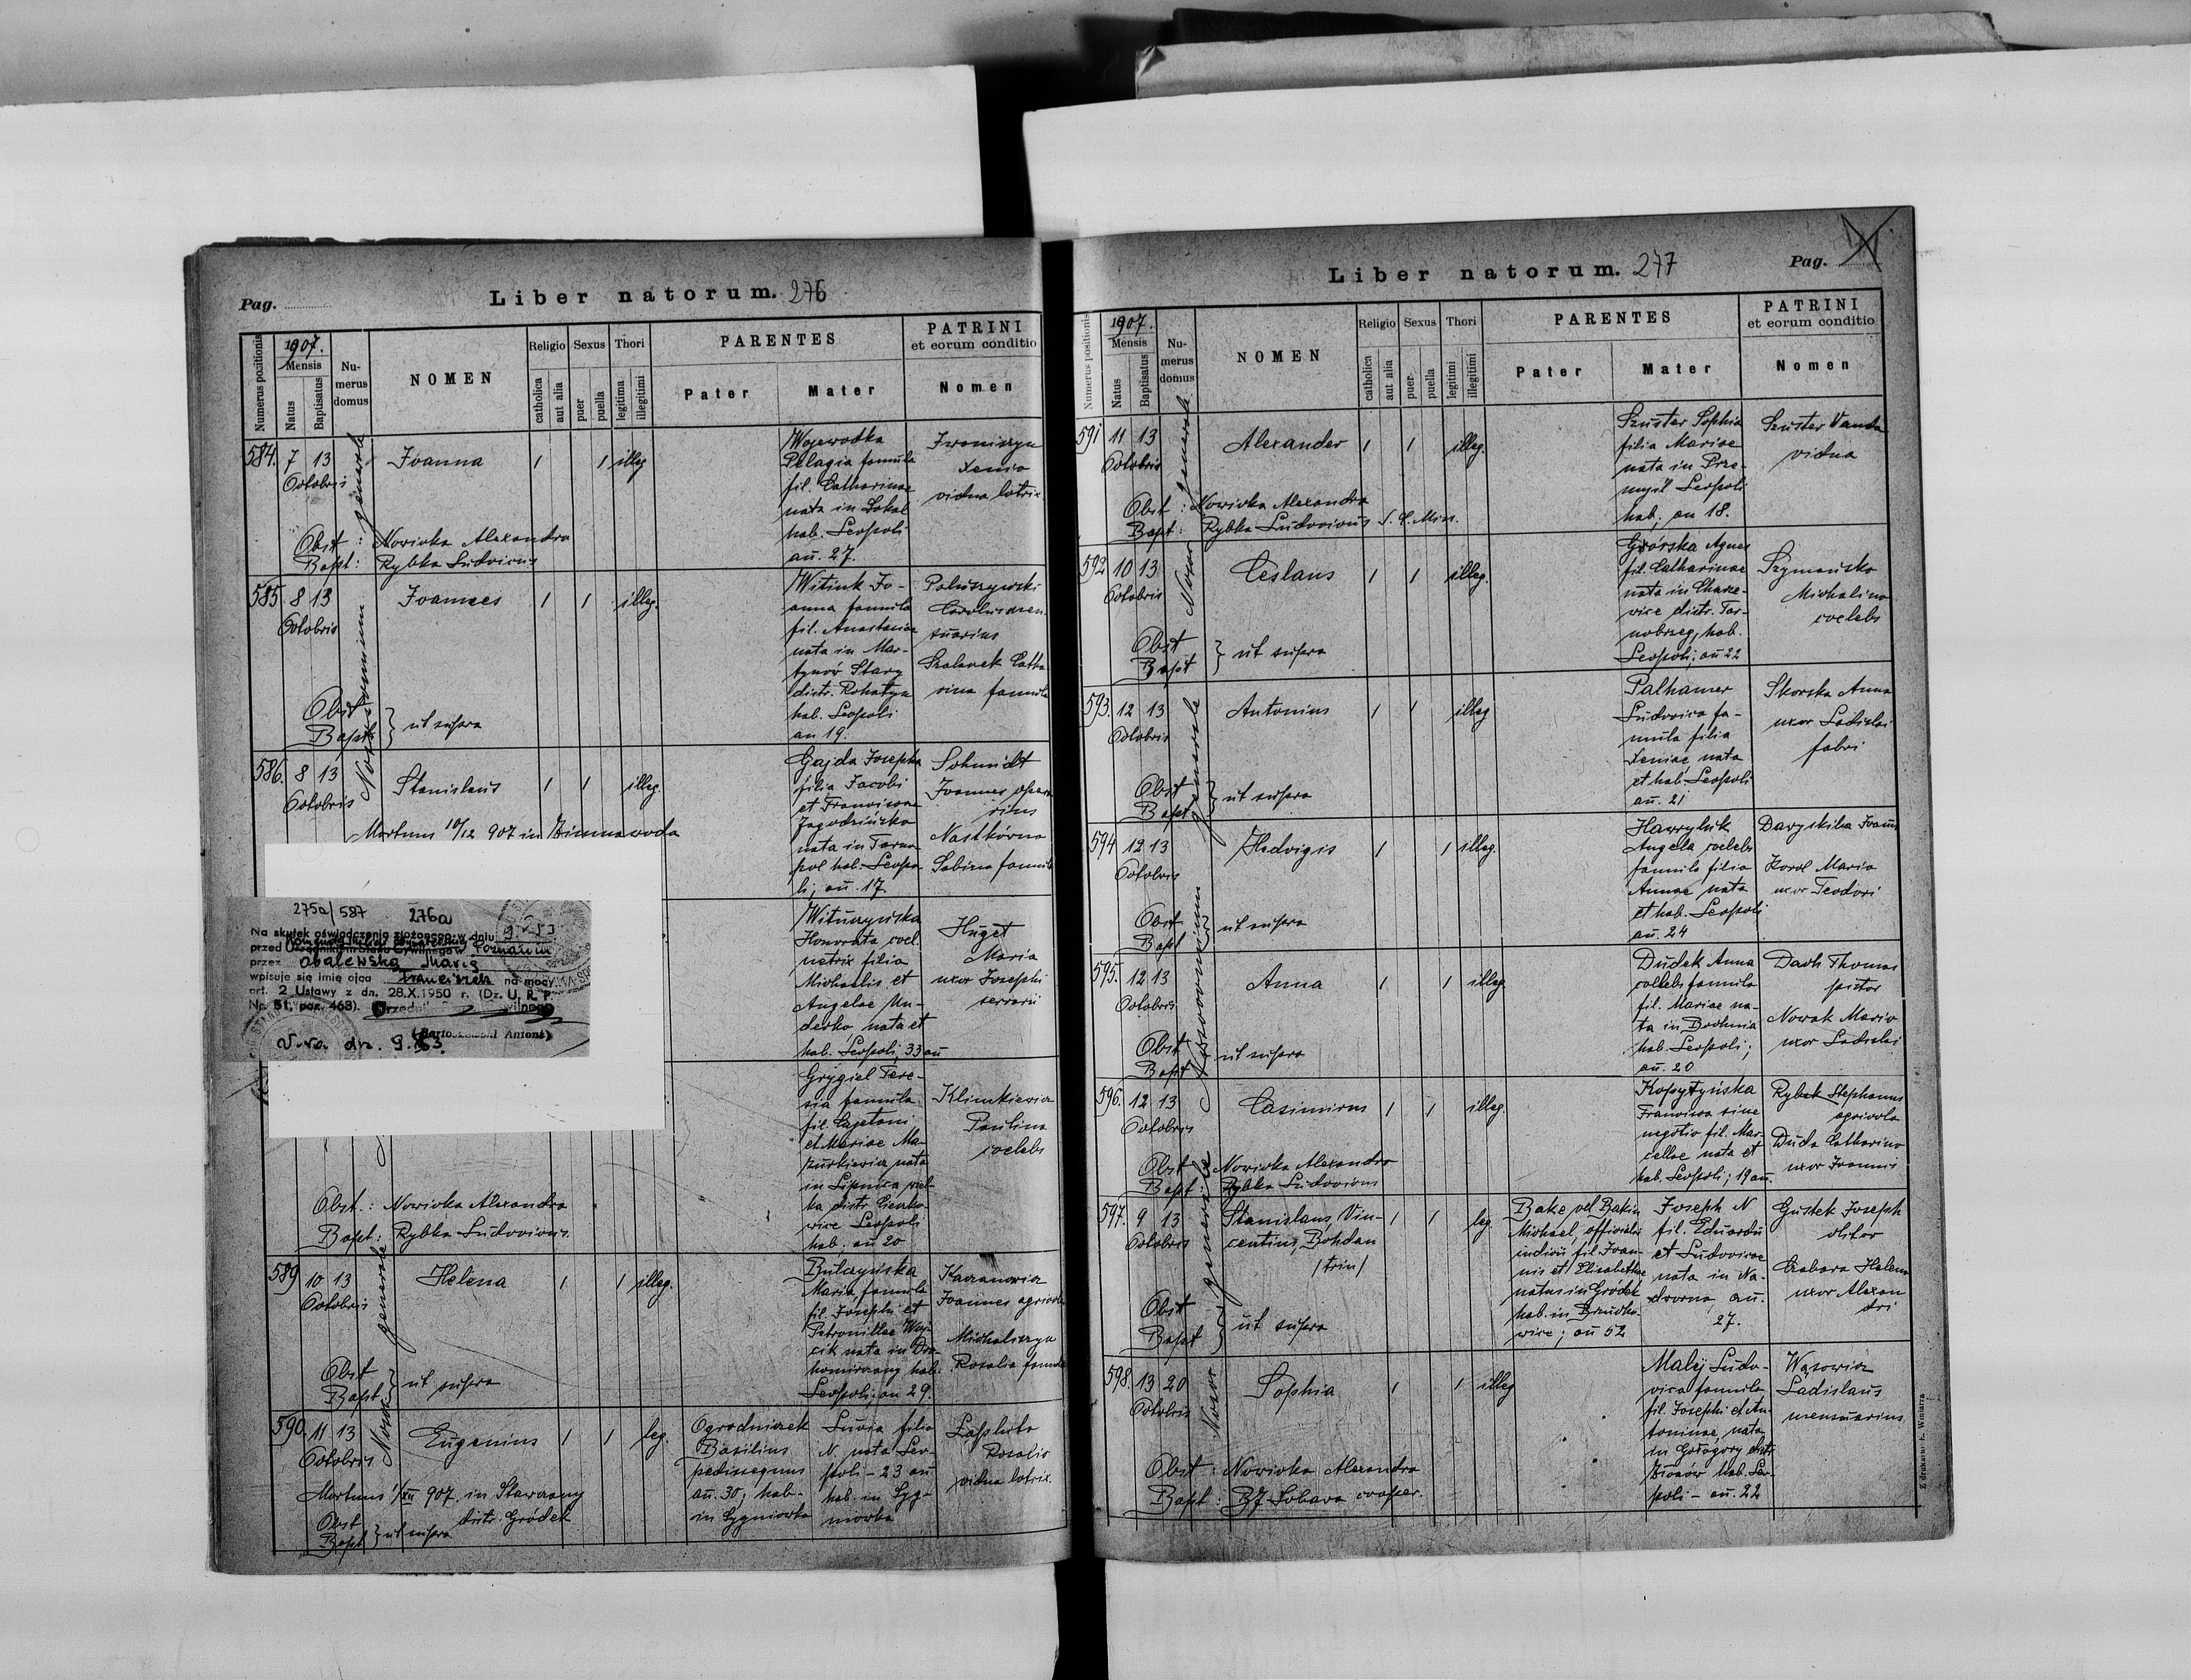 Pag.
Liber natorum. 276
Numerus positionis
1907.
Mensis
Natus
Baptisatus
Numerus domus
NOMEN
Religio
catholica
aut alia
Sexus
puer
puella
Thori
legitima
illegitimi
PARENTES
Pater
Mater
PATRINI
et eorum conditio
Nomen
584. 7 13
Octobris
Joanna
1 1 illeg
Wojewodka
Pelagia famula
fil. Catharinae
nata in Sokal
hab. Leopoli
an. 27.
Xenia
vidua lotrix
Obst : Nowicka Alexandra
Bapt : Rybka Ludovicus
585. 8 13
Octobris
Joannes
1 1 illeg.
Witiuk Jo-
anna famula
fil. Anastasiae
nata in Mar-
tynów Stary
distr. Rohatyn
hab. Leopoli
an 19.
Obst
Bapt } ut supra
586. 8 13
Octobris
Stanislaus
1 1 illeg.
Mortuus 10/12 907 in Zimnawoda
Gajda Josepha
filia Jacobi
et Franciscae
nata in Tarno-
pol hab. Leopo-
li; an. 17.
Schmidt
Joannes opera
rius
Sabina famula
275a/587 276a
Na skutek oświadczenia złożonego w dniu
przed Urzędnikiem Stanu Cywilnego w Poznaniu
przez
wpisuje się imię ojca Franciszek na mocy
art. 2 Ustawy z dn. 28.X.1950 r. (Dz. U. R. P.
Nr. 51, poz. 468).
Honorata coel.
filia
Michaelis et
Angelae
nata et
hab. Leopoli, 33 an
Huget
Maria
uxor Josephi
serrarii
Grygiel Tere-
sia famula
fil. Cajetani
et Mariae Ma-
zurkiewicz nata
in Lipnica wiel-
ka distr. Ciężko-
wice Leopoli
hab; an 20
Klimkiewicz
Paulina
coelebs
Obst. : Nowicka Alexandra
Bapt : Rybka Ludovicus.
generale
589 10 13
Octobris
Helena
1 1 illeg.
Maria, famula
fil. Josephi et
Petronillae Woj-
cik nata in
hab.
Leopoli; an 29.
Joannes agricola
Rosalia famula
Obst
Bapt. } ut supra
590. 11 13
Octobris
Eugenius
1 1 leg.
Ogrodniczek
Basilius
pedissequus
an. 30; hab.
in Sygniówka
Lucia filia
N. nata Leo-
poli - 23 an
hab. in Syg-
niówka
Rosalia
vidua lotrix
Mortuus 1/XII 907. in Stawczany
distr. Gródek
Obst
Bapt } ut supra
Liber natorum. 277
Pag.
Numerus positionis
1907.
Mensis
Natus
Baptisatus
Numerus domus
NOMEN
Religio
catholica
aut alia
Sexus
puer
puella
Thori
legitimi
illegitimi
PARENTES
Pater
Mater
PATRINI
et eorum conditio
Nomen
591 11 13
Octobris
Alexander
1 1 illeg.
Szuster Sophia
filia Mariae
nata in Prze-
myśl Leopoli
hab; an 18.
Szuster Vanda
vidua
Obst : Nowicka Alexandra
Bapt : Rybka Ludovicus
592 10 13
Octobris
Ceslaus
1 1 illeg.
Górska Agnes
fil. Catharinae
nata in Charze-
wice distr. Tar-
nobrzeg, hab.
Leopoli; an 22
Szymańska
Michalina
coelebs
Obst
Bapt } ut supra
593. 12 13
Octobris
Antonius
1 1 illeg
Palhamer
Ludovica fa-
mula filia
Xeniae, nata
et hab. Leopoli
an. 21
Skorska Anna
uxor Ladislai
fabri
Obst
Bapt } ut supra
594 12 13
Octobris
Hedvigis
1 1 illeg.
Hawryluk
Angela, coelebs
famula filia
Annae nata
et hab. Leopoli
an. 24
Korol Maria
uxor Teodori
Obst
Bapt } ut supra
Nosocomium
595. 12 13
Octobris
Anna
1 1 illeg
Dudek Anna
coelebs famula
fil. Mariae na-
ta in Bochnia
hab. Leopoli;
an. 20
Dach Thomas
pictor
Nowak Maria
uxor Ladislai
Obst
Bapt ut supra
596. 12 13
Octobris
Casimirus
1 1 illeg.
Kopytyńska
Francisca sine
negotio fil. Mar-
cellae nata et
hab. Leopoli; 19 an.
Rybak Stephanus
agricola
Duda Catharina
uxor Joannis
Obst Nowicka Alexandra
Bapt Rybka Ludovicus
generale
597. 9 13
Octobris
Stanislaus, Vin-
centius, Bohdan
/trin/
1 1 leg.
Bake vel Bakun
Michael, officialis
fil. Joan-
nis et Elisabethae
natus in Gródek
hab. in Brzucho-
wice; an 52
Joseph N
fil. Eduardi
et Ludovicae
nata in Na-
dworna, an.
27.
Gustek Joseph
Helena
uxor Alexan
dri
Obst
Bapt } ut supra
598. 13 20
Octobris
Sophia
1 1 illeg
Malej Ludo-
vica famula
fil. Josephi et An-
toninae, nata
in Gołogory distr.
Złoczów hab. Leo-
poli - an. 22
Wąsowicz
Ladislaus
mensuarius
Obst : Nowicka Alexandra
Bapt : cooper.
Z drukarni E. Winiarza